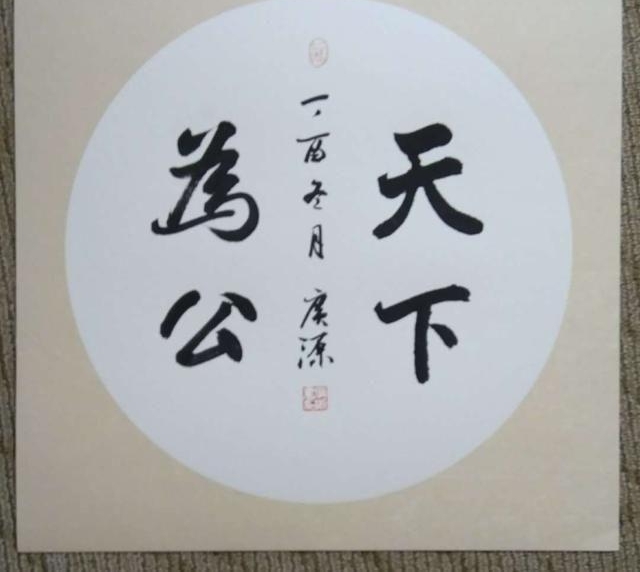 天下
為公
丁酉冬月 广源